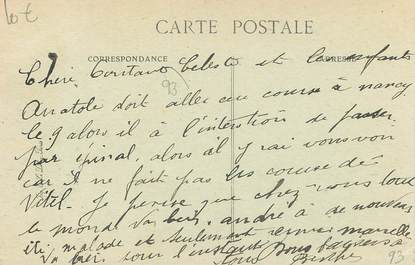 Lot
CARTE POSTALE
CORRESPONDANCE ADRESSE
Cheri Constant Celeste et les enfants
Anatole doit aller au course à nancy
le 9 alors il à l'intention de passer
par épinal, alors al y rai vous voir
car il ne fait pas les course de
Vitel. Je pense que chez vous tout
le monde va bien, andré à de nouveau
été malade et seulement marcelle
va bien pour l'instant
Berthe
93
93